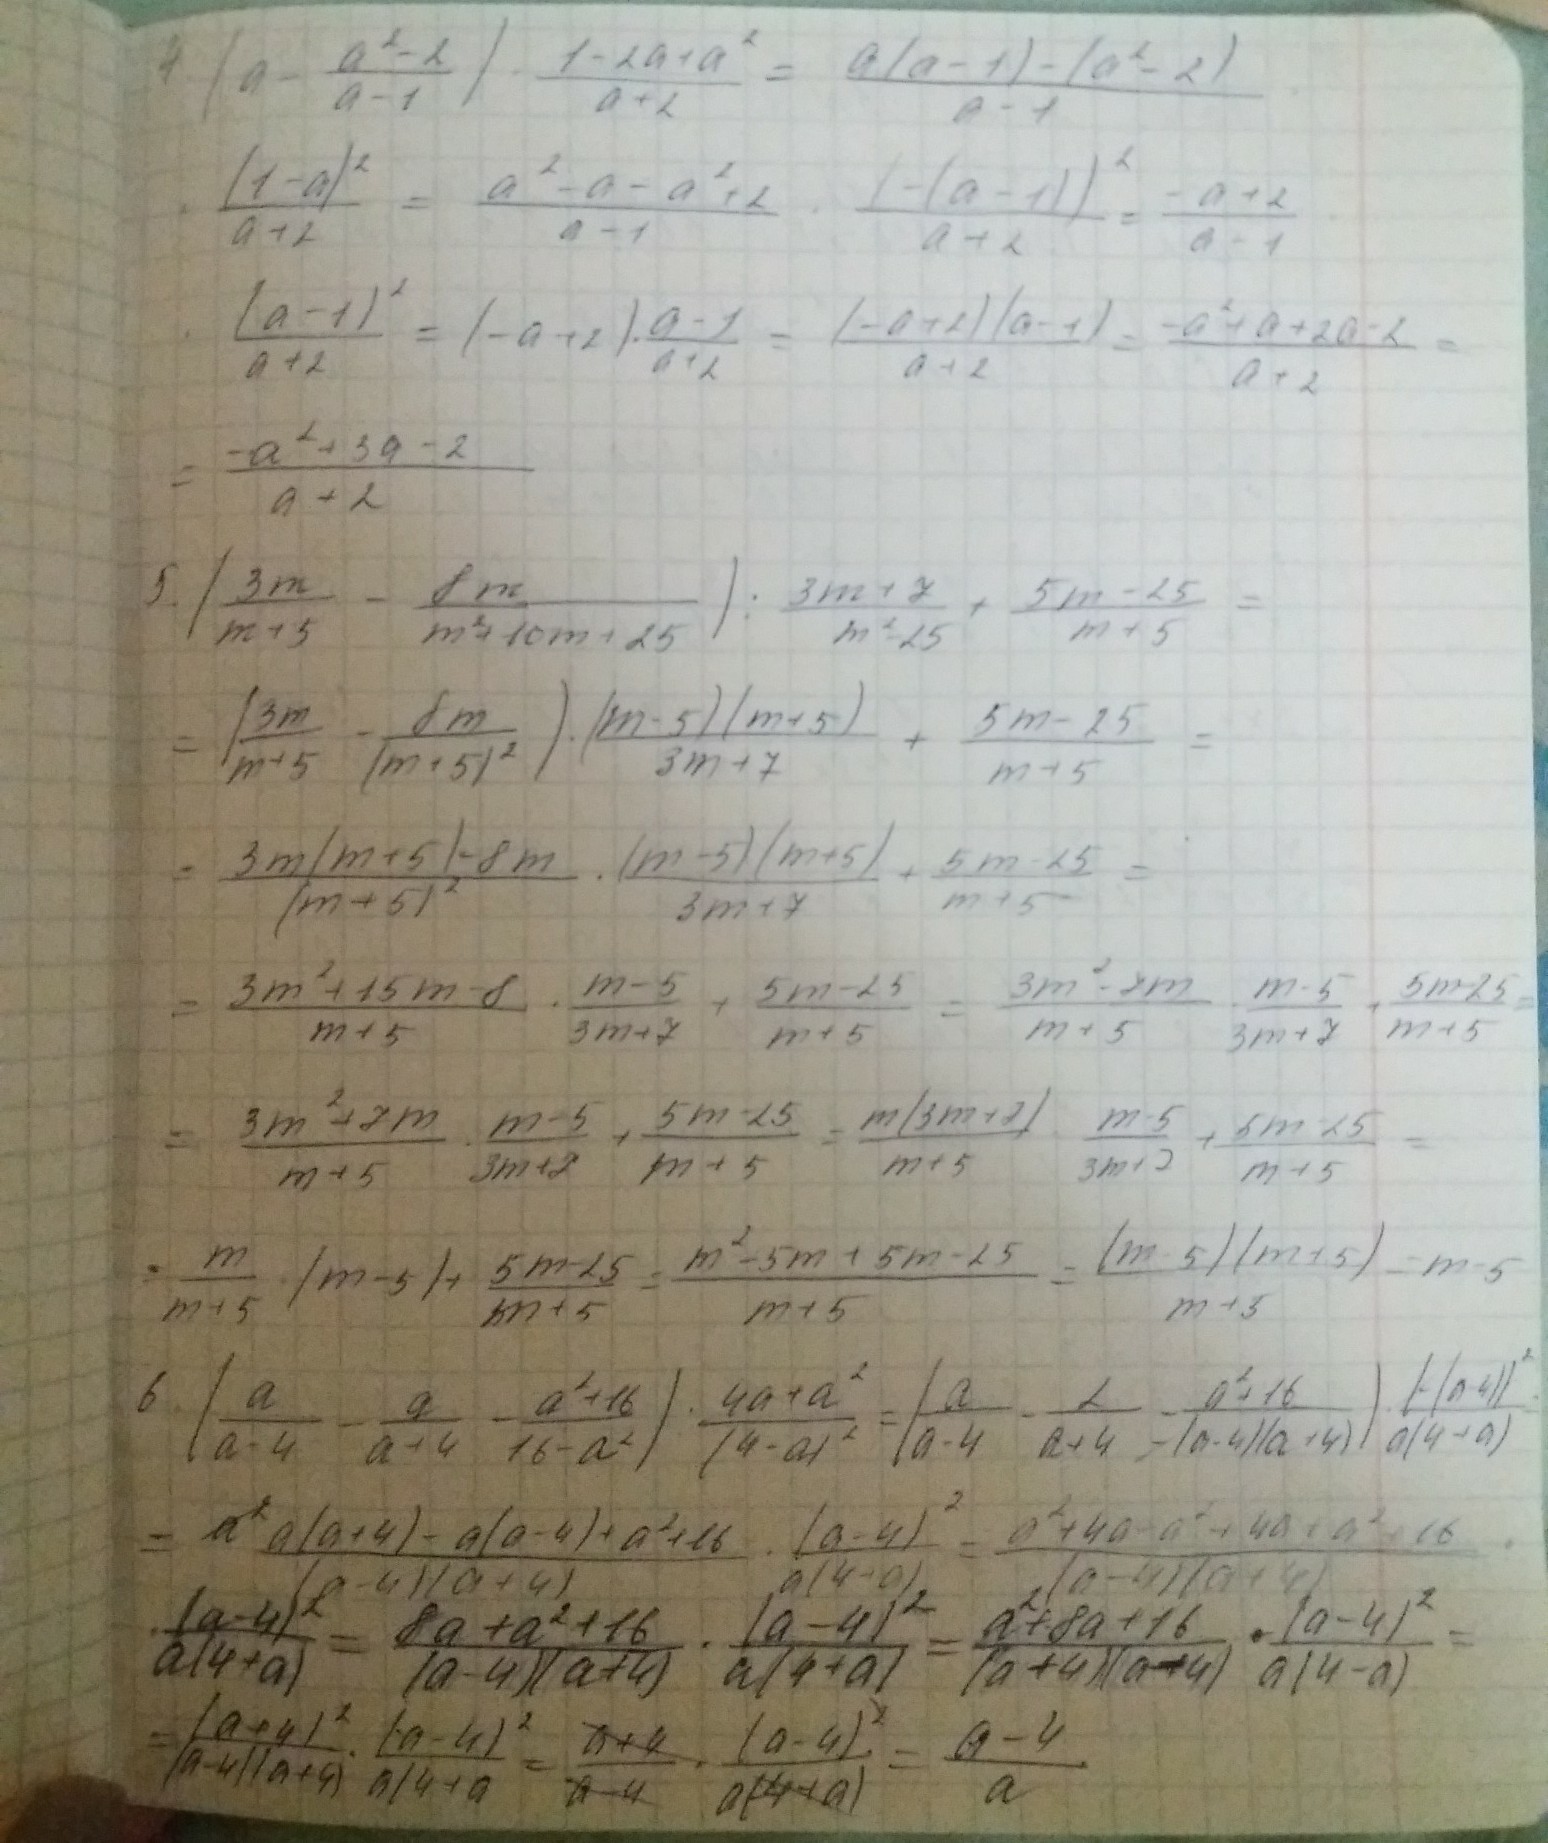 4. (a - (a² - 2)/(a - 1)) · (1 - 2a + a²)/(a + 2) = (a(a - 1) - (a² - 2))/(a - 1) ·
· (1 - a)²/(a + 2) = (a² - a - a² + 2)/(a - 1) · (-(a - 1))²/(a + 2) = (-a + 2)/(a - 1) ·
· (a - 1)²/(a + 2) = (-a + 2) · (a - 1)/(a + 2) = ((-a + 2)(a - 1))/(a + 2) = (-a² + a + 2a - 2)/(a + 2) =
= (-a² + 3a - 2)/(a + 2)
5. (3m/(m + 5) - 8m/(m² + 10m + 25)) : (3m + 7)/(m² - 25) + (5m - 25)/(m + 5) =
= (3m/(m + 5) - 8m/(m + 5)²) · ((m - 5)(m + 5))/(3m + 7) + (5m - 25)/(m + 5) =
= (3m(m + 5) - 8m)/(m + 5)² · ((m - 5)(m + 5))/(3m + 7) + (5m - 25)/(m + 5) =
= (3m² + 15m - 8)/(m + 5) · (m - 5)/(3m + 7) + (5m - 25)/(m + 5) = (3m² - 7m)/(m + 5) · (m - 5)/(3m + 7) + (5m - 25)/(m + 5) =
= (3m² + 7m)/(m + 5) · (m - 5)/(3m + 7) + (5m - 25)/(m + 5) = m(3m + 7)/(m + 5) · (m - 5)/(3m + 7) + (5m - 25)/(m + 5) =
= m/(m + 5) · (m - 5) + (5m - 25)/(m + 5) = (m² - 5m + 5m - 25)/(m + 5) = ((m - 5)(m + 5))/(m + 5) = m - 5
6. (a/(a - 4) - a/(a + 4) - (a² + 16)/(16 - a²)) · (4a + a²)/(4 - a)² = (a/(a - 4) - 2/(a + 4) - (a² + 16)/(-(a - 4)(a + 4))) · (-(a - 4))²/(a(4 + a)) =
= (a(a + 4) - a(a - 4) + a² + 16)/((a - 4)(a + 4)) · (a - 4)²/(a(4 + a)) = (a² + 4a - a² + 4a + a² + 16)/((a - 4)(a + 4)) ·
· (a - 4)²/(a(4 + a)) = (8a + a² + 16)/((a - 4)(a + 4)) · (a - 4)²/(a(4 + a)) = (a² + 8a + 16)/((a + 4)(a - 4)) · (a - 4)²/(a(4 - a)) =
= (a + 4)²/((a - 4)(a + 4)) · (a - 4)²/(a(4 + a) = (a + 4)/(a - 4) · (a - 4)²/(a(4 + a)) = (a - 4)/a